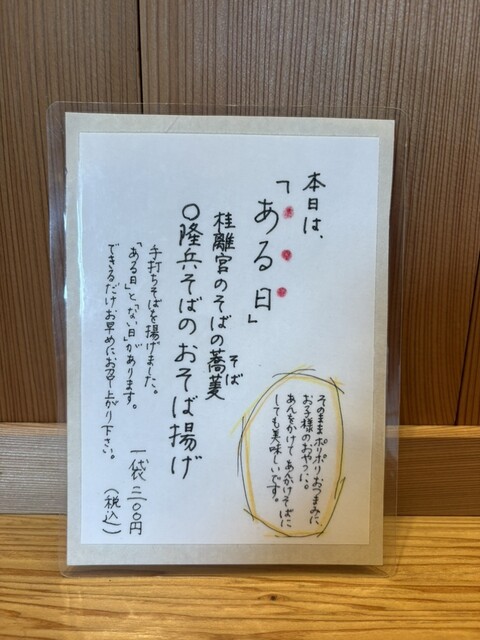 本日は、
「ある日」
桂離宮のそばの蕎麦
そば
〇隆兵そばのおそば揚げ
手打ちそばを揚げました。
「ある日」と「ない日」があります。
できるだけお早めにお召し上がり下さい。
一袋 三〇〇円
(税込)
そのまま ポリポリ おつまみに
お子様のおやつに。
あんをかけて あんかけそばに
しても美味しいです。